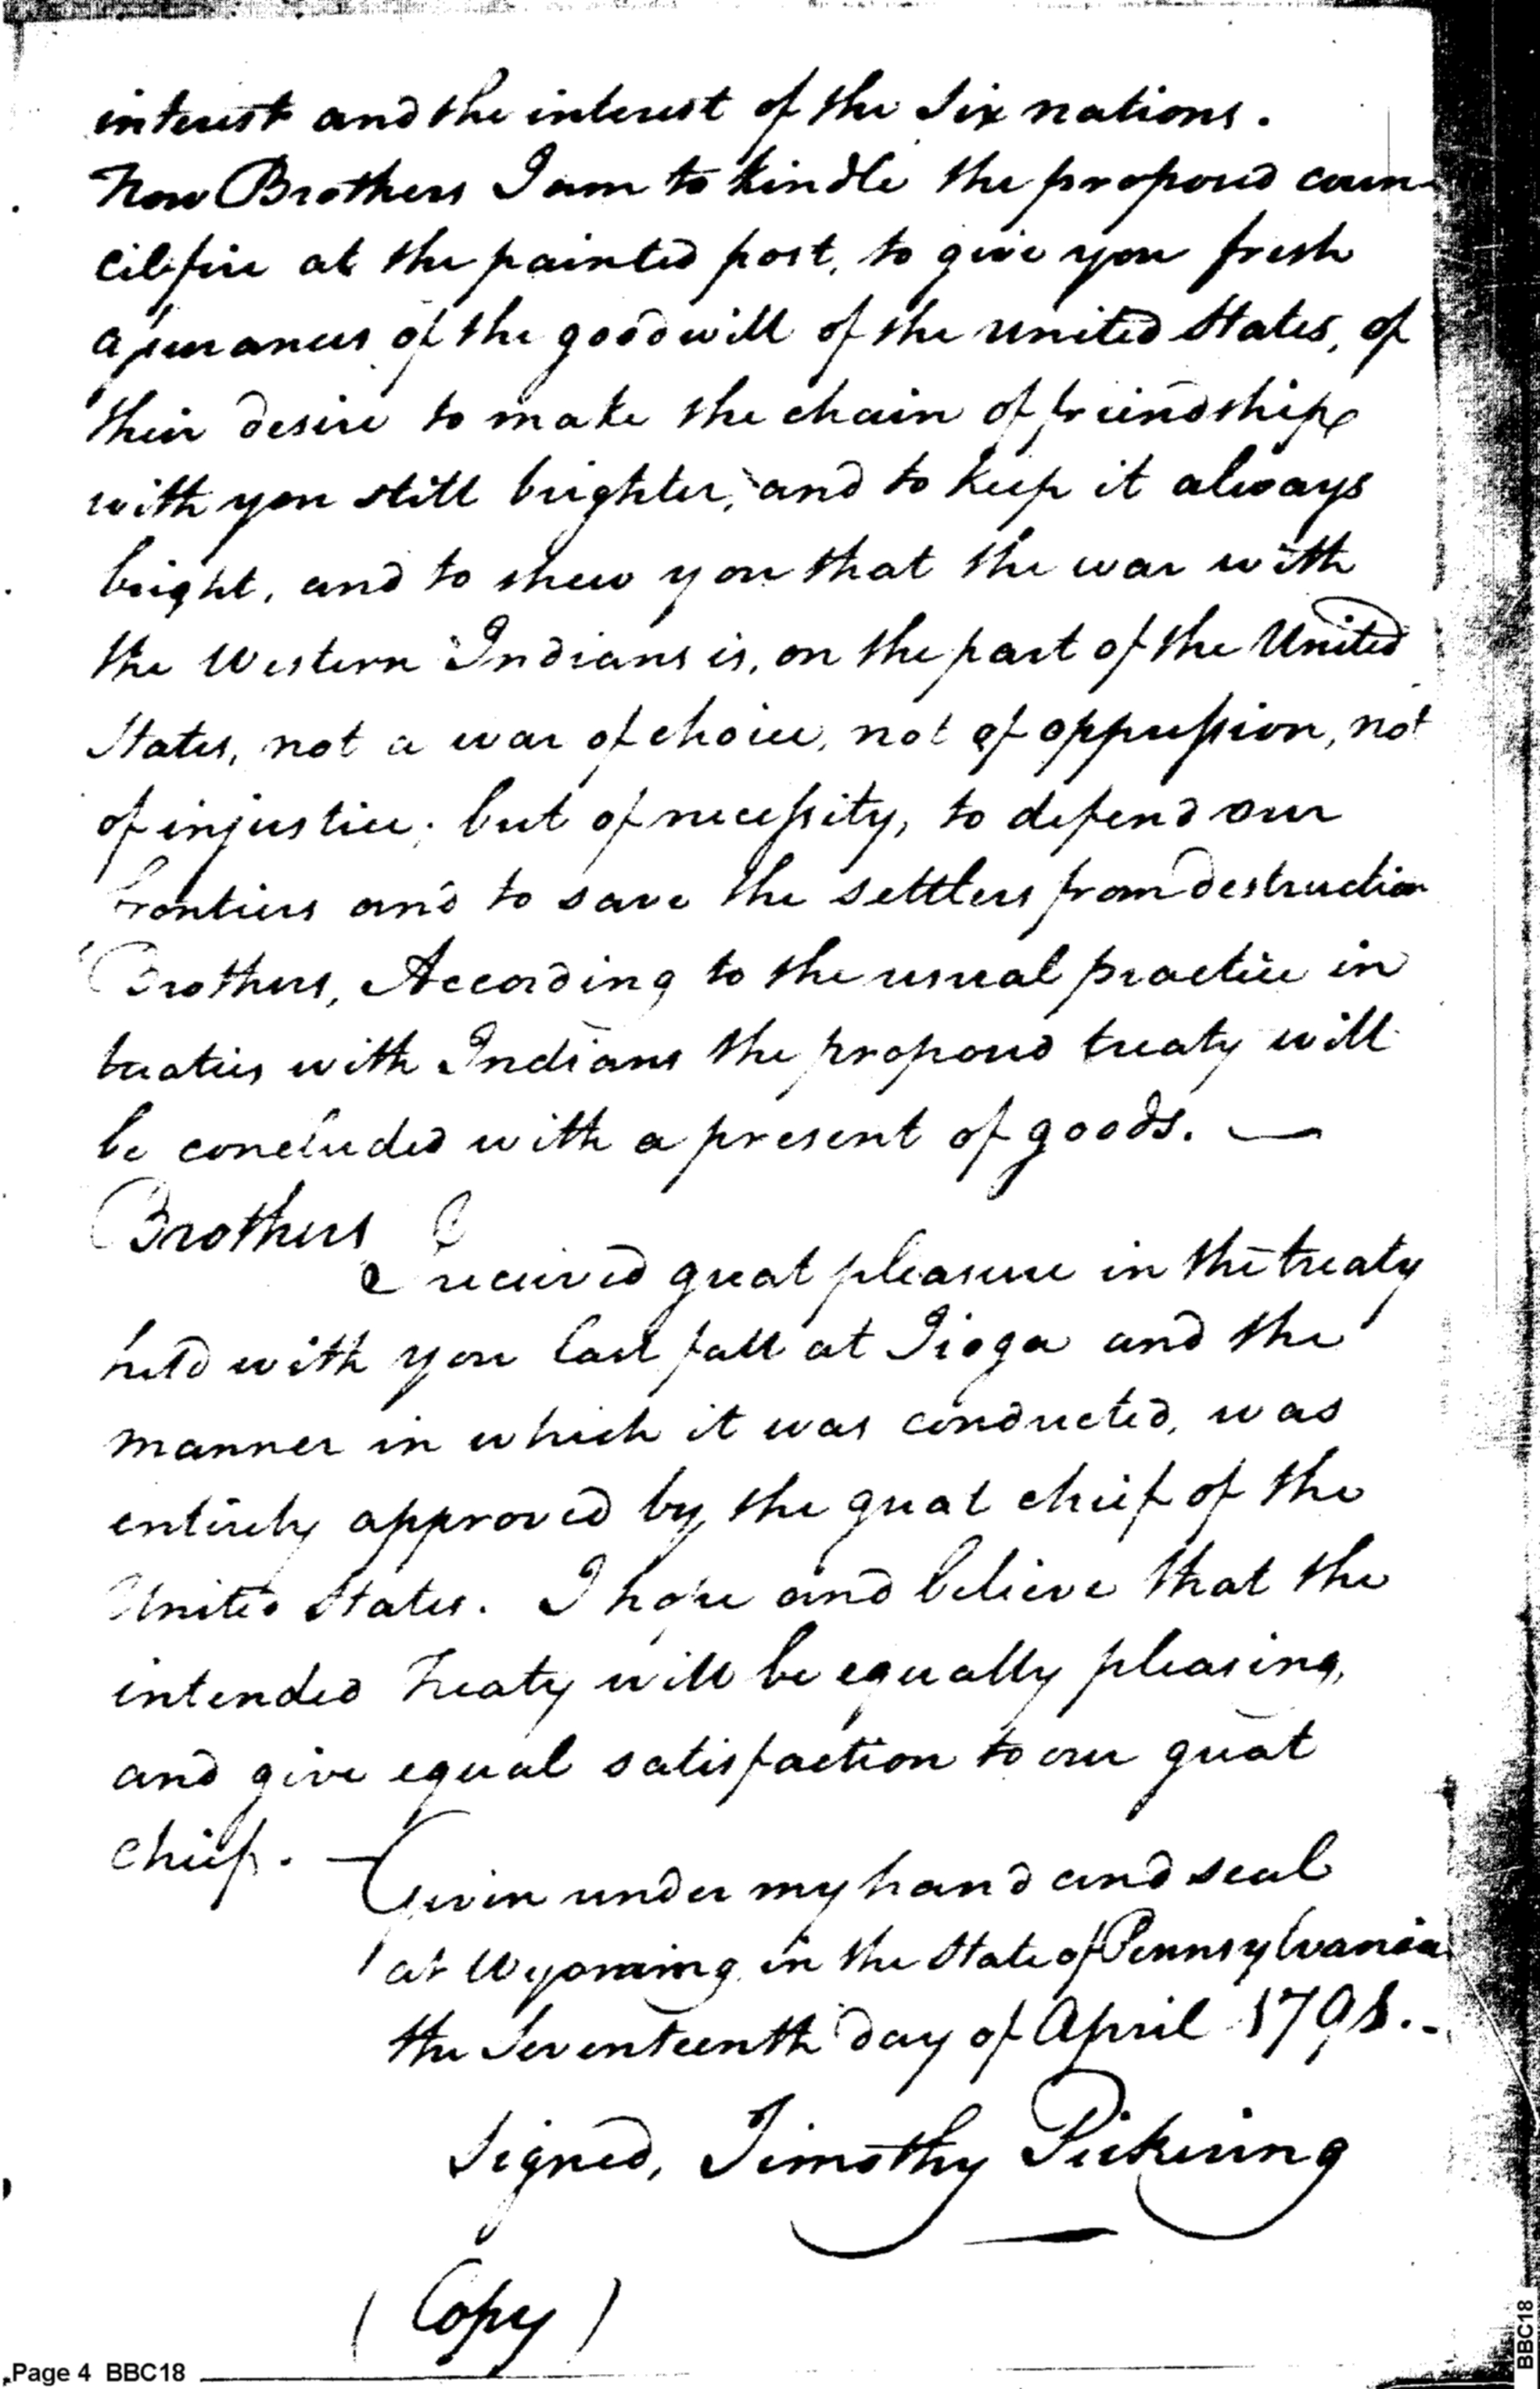 interest and the interest of the six nations.
Now Brothers I am to kindle the proposed coun-
cil fire at the painted post, to give you fresh
assurances of the good will of the united States, of
their desire to make the chain of friendship
with you still brighter, and to keep it always
bright, and to shew you that the war with
the Western Indians is, on the part of the United
States, not a war of choice, not of oppression, not
of injustice; but of necessity, to defend our
frontiers and to save the settlers from destruction
Brothers, According to the usual practice in
treaties with Indians the proposed treaty will
be concluded with a present of goods. —
Brothers
I received great pleasure in the treaty
held with you last fall at Tioga and the
manner in which it was conducted, was
entirely approved by the great chief of the
United States. I hope and believe that the
intended Treaty will be equally pleasing,
and give equal satisfaction to our great
chief. —
Given under my hand and seal
at Wyoming in the State of Pennsylvania
the Seventeenth day of April 1791.-
Signed, Timothy Pickering
(Copy)
Page 4 BBC18
BBC18